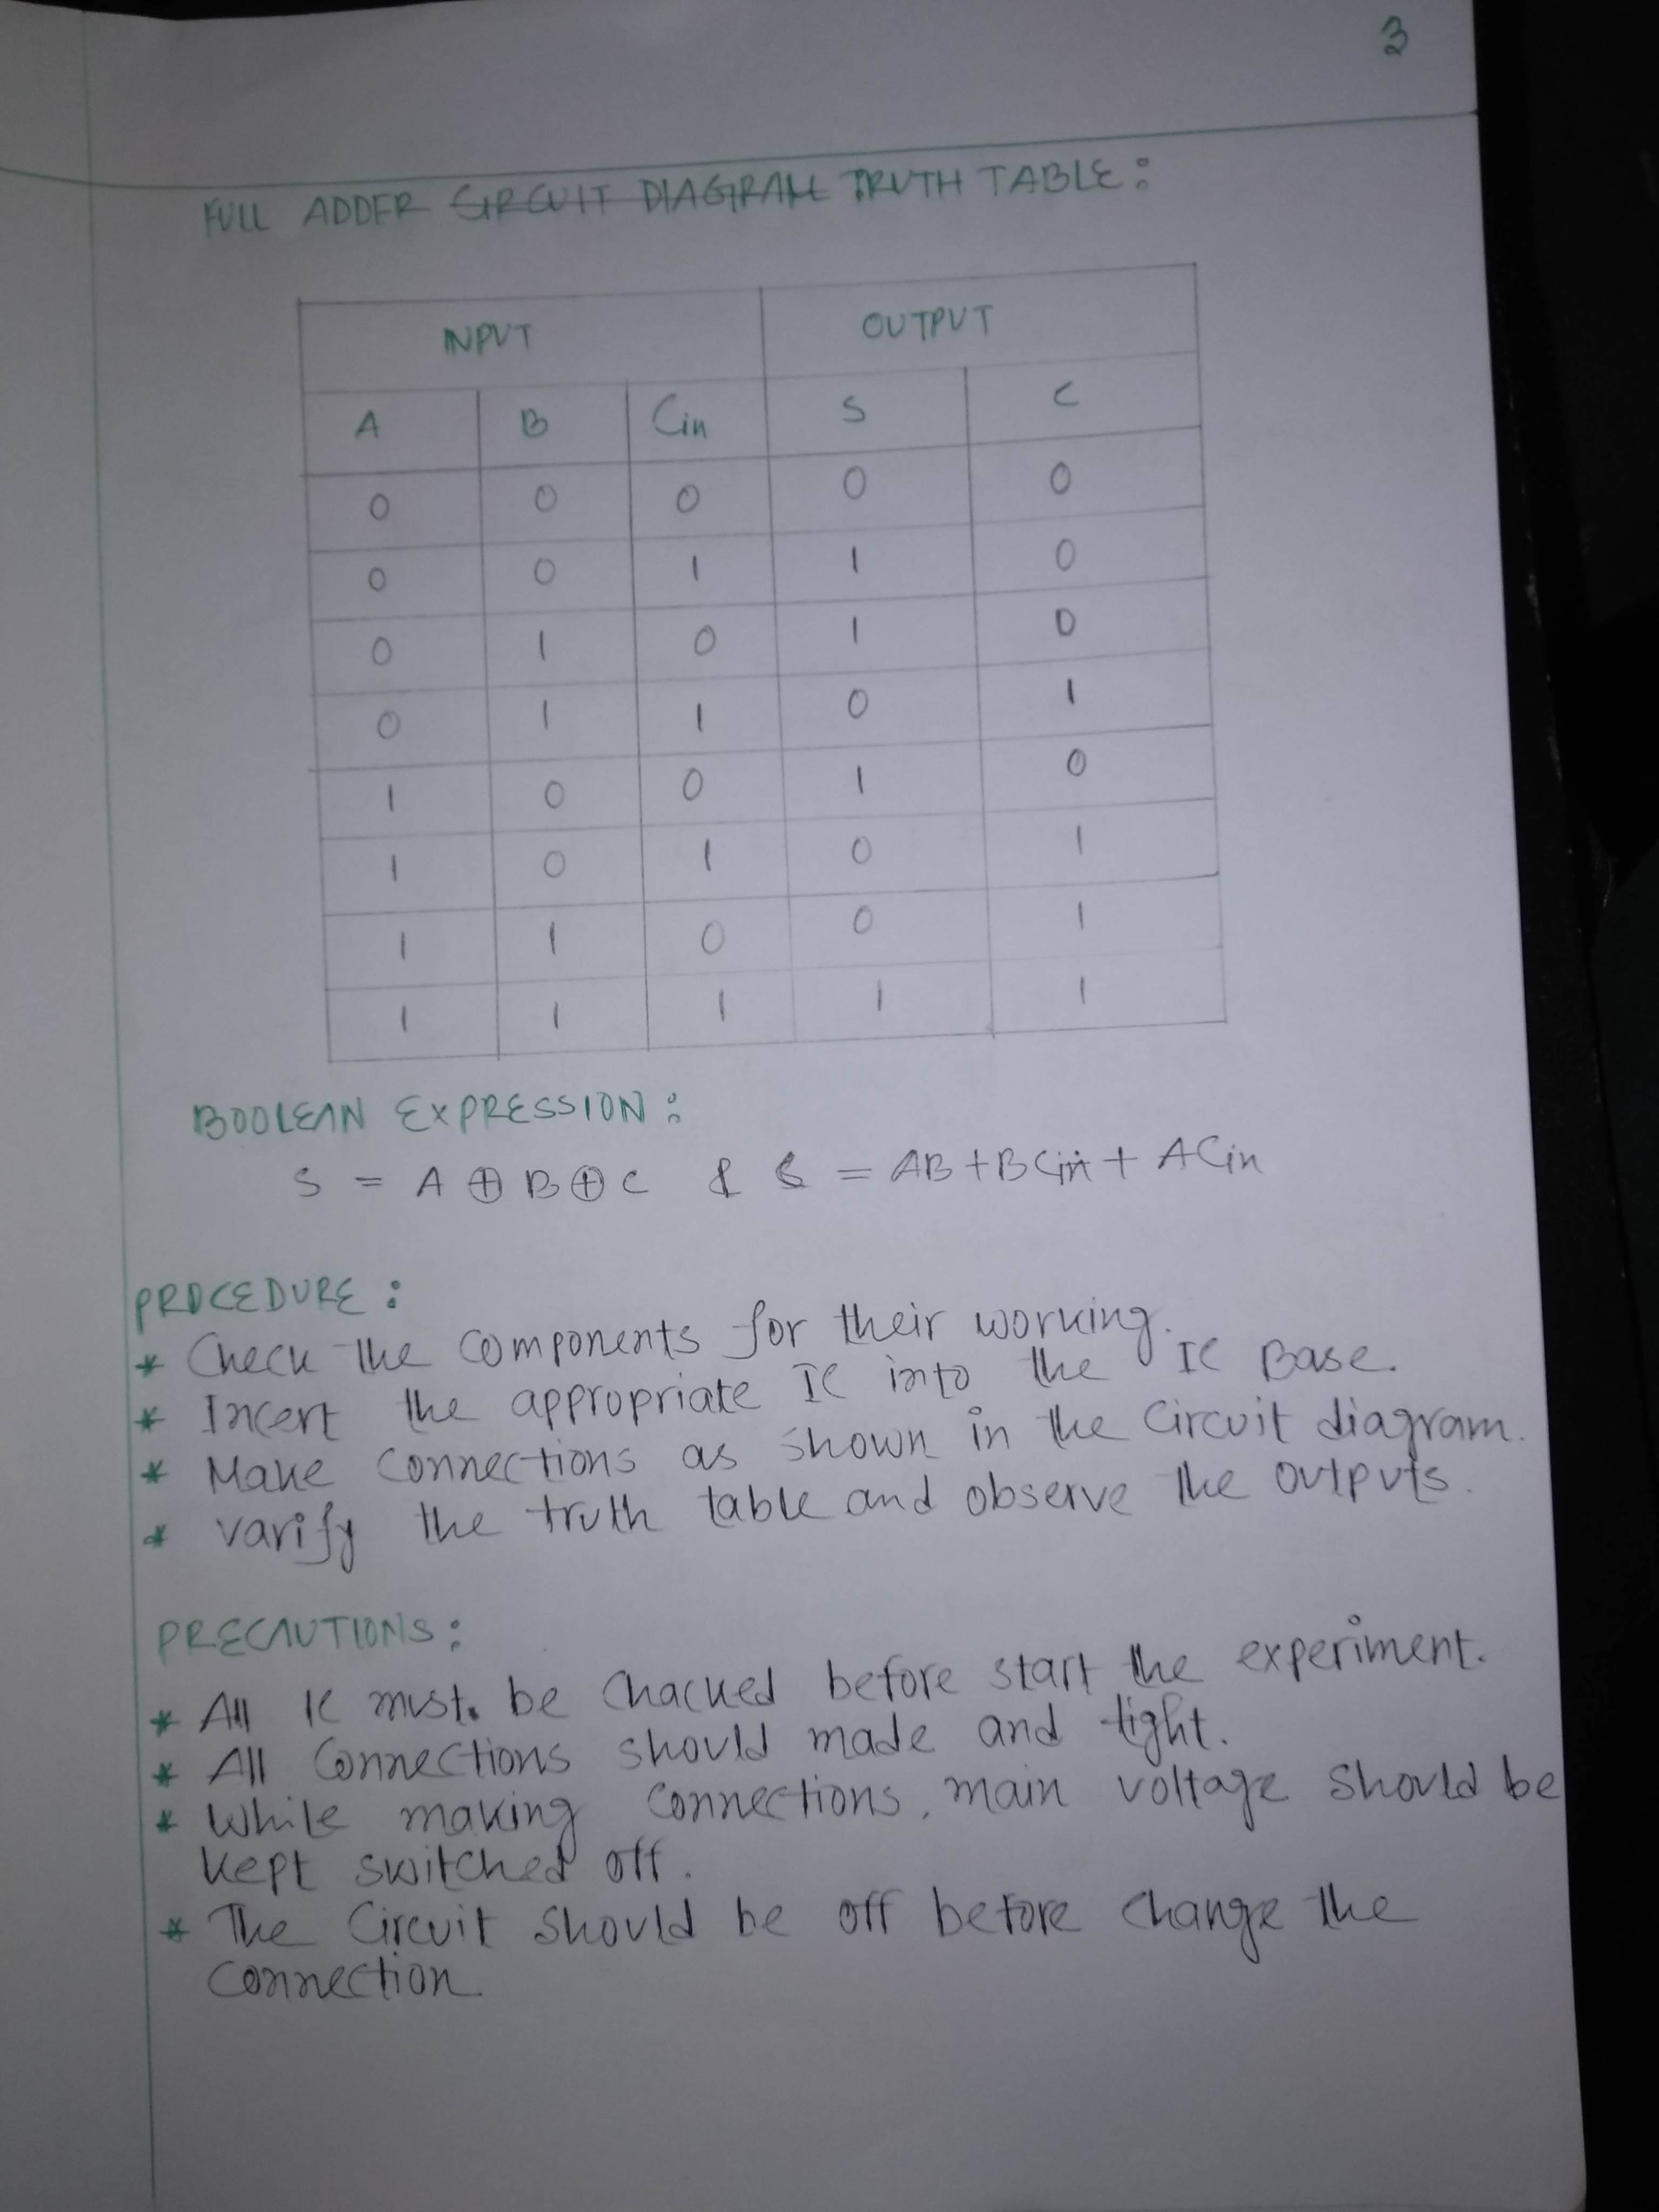 3
FULL ADDER CIRCUIT DIAGRAM TRUTH TABLE:
INPUT OUTPUT
A B Cin S C
0 0 0 0 0
0 0 1 1 0
0 1 0 1 0
0 1 1 0 1
1 0 0 1 0
1 0 1 0 1
1 1 0 0 1
1 1 1 1 1
BOOLEAN EXPRESSION:
S = A ⊕ B ⊕ C & = AB + BCin + ACin
PROCEDURE:
* Check the components for their working.
* Incert the appropriate IC into the IC Base.
* Make connections as shown in the circuit diagram.
* varify the truth table and observe the outputs.
PRECAUTIONS:
* All IC must. be chacked before start the experiment.
* All connections should made and tight.
* While making connections, main voltage should be
kept switched off.
* The circuit should be off before change the
connection.